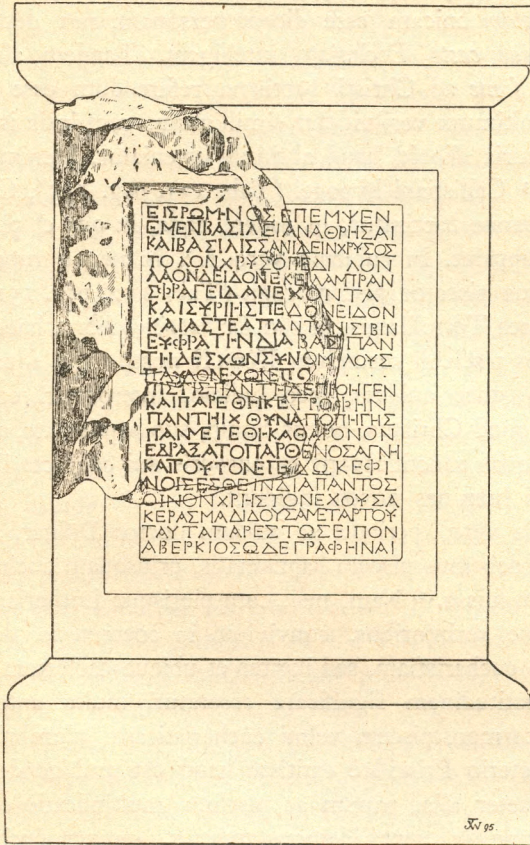 ΕΙΣΡΩΜΗΝΟΣΕΠΕΜΨΕΝ
ΕΜΕΝΒΑΣΙΛΕΙΑΝΑΘΡΗΣΑΙ
ΚΑΙΒΑΣΙΛΙΣΣΑΝΙΔΕΙΝΧΡΥΣΟΣ
ΤΟΛΟΝΧΡΥΣΟΠΕΔΙΛΟΝ
ΛΑΟΝΔΕΙΔΟΝΕΚΕΙΛΑΜΠΡΑΝ
ΣΦΡΑΓΕΙΔΑΝΕΧΟΝΤΑ
ΚΑΙΣΥΡΙΗΣΠΕΔΟΝΕΙΔΟΝ
ΚΑΙΑΣΤΕΑΠΑΝΤΑΝΙΣΙΒΙΝ
ΕΥΦΡΑΤΗΝΔΙΑΒΑΣΠΑΝ
ΤΗΔΕΣΧΩΝΣΥΝΟΜΙΛΟΥΣ
ΠΑΥΛΟΝΕΧΩΝΕΠΟ.....
ΠΙΣΤΙΣΠΑΝΤΗΔΕΠΡΟΗΓΕΝ
ΚΑΙΠΑΡΕΘΗΚΕΤΡΟΦΗΝ
ΠΑΝΤΗΙΧΘΥΝΑΠΟΠΗΓΗΣ
ΠΑΝΜΕΓΕΘΗΚΑΘΑΡΟΝΟΝ
ΕΔΡΑΞΑΤΟΠΑΡΘΕΝΟΣΑΓΝΗ
ΚΑΙΤΟΥΤΟΝΕΠΕΔΩΚΕΦΙ
ΛΟΙΣΕΣΘΕΙΝΔΙΑΠΑΝΤΟΣ
ΟΙΝΟΝΧΡΗΣΤΟΝΕΧΟΥΣΑ
ΚΕΡΑΣΜΑΔΙΔΟΥΣΑΜΕΤΑΡΤΟΥ
ΤΑΥΤΑΠΑΡΕΣΤΩΣΕΙΠΟΝ
ΑΒΕΡΚΙΟΣΩΔΕΓΡΑΦΗΝΑΙ